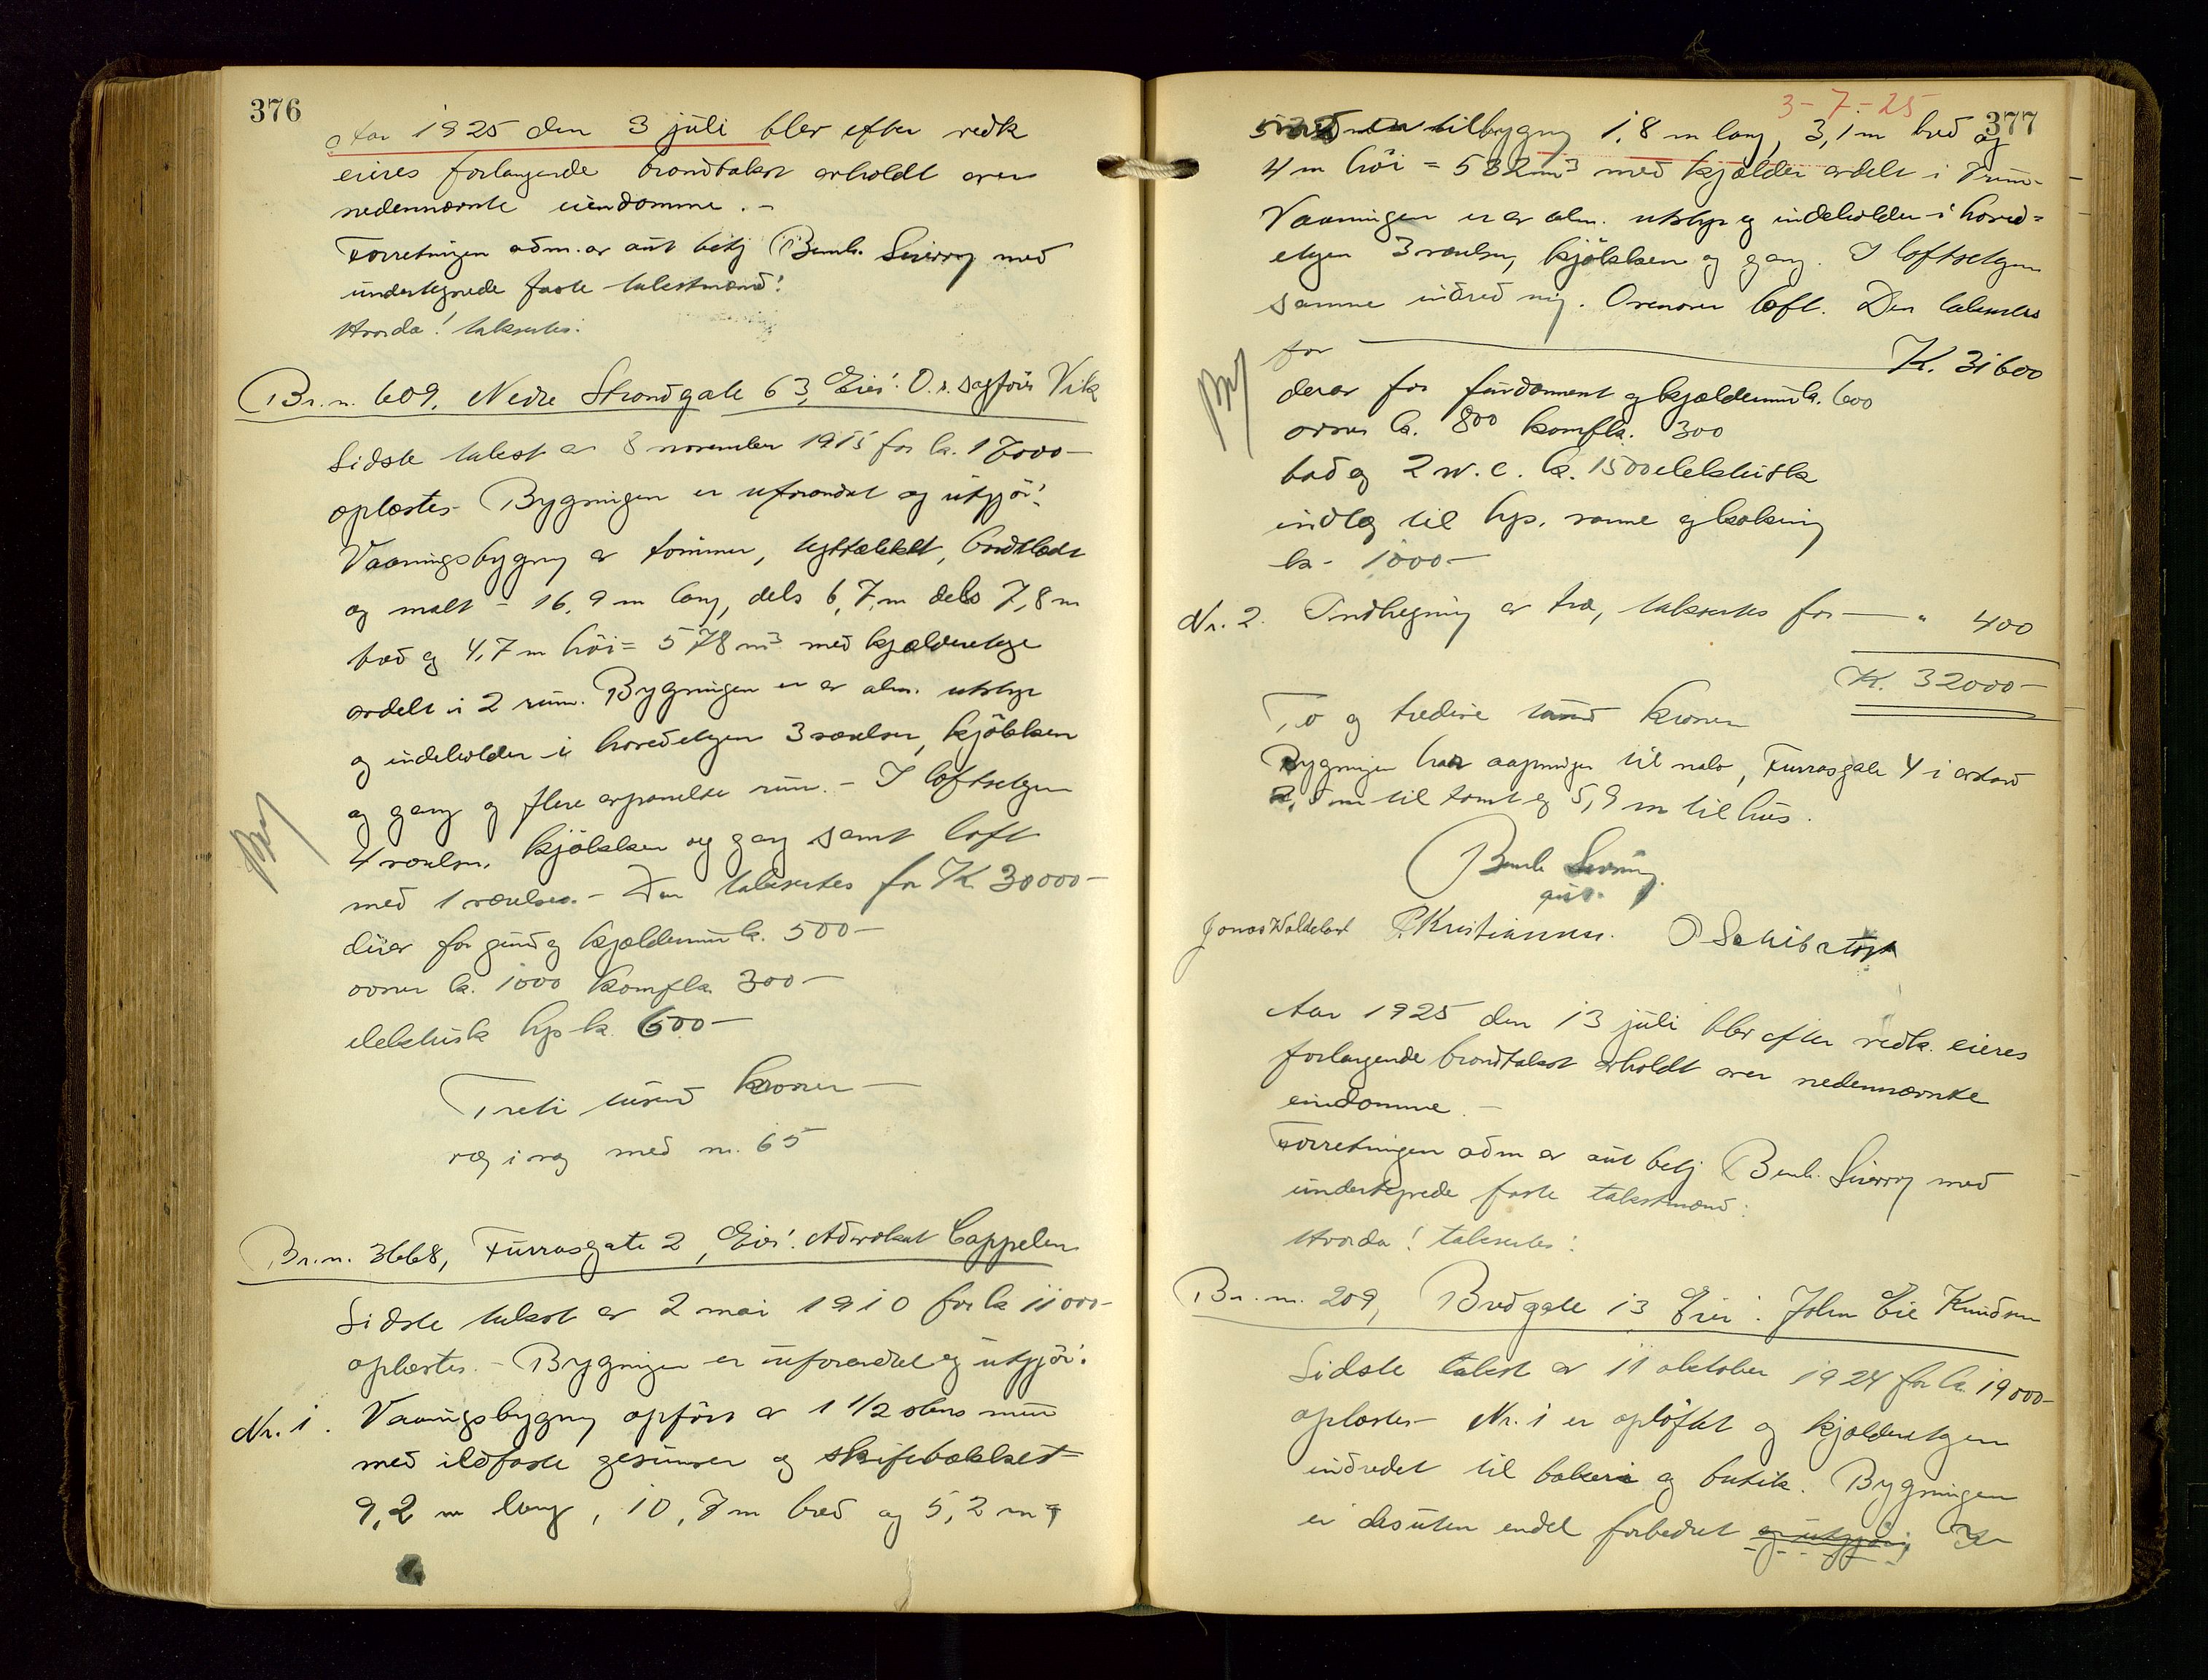 376
Aar 1925 den 3 juli blev efter vedk
eieres forlangende brandtakst avholdt over
nedennævnte eiendomme. -
Forretningen adm. av aut bety Bernh. Siversøn med
undertegnede faste takstmænd:
Hvorda! takseres:
Br. n. 609, Nedre Strandgate 63, Eier: O.r. sagfører Vik
Sidste takst av 8 november 1915 for kr. 17000-
oplæstes - Bygningen er uforandret og utgjør:
Vaaningsbygning av tømmer, teglstækket, bordklædt
og malt - 16,9 m lang, dels 6,7 m dels 7,8 m
bred og 4,7 m høi = 578 m3 med kjælderetage
avdelt i 2 rum. Bygningen er av alm. utstyr
og indeholder i hovedetagen 3 værelser, kjøkken
og gang og flere avpanelte rum. - I loftsetagen
4 værelser, kjøkken og gang samt loft
med 1 værelse. - Den takseres for Kr. 30000-
derav for grund og kjældermur kr. 500-
ovner kr. 1000 komfkr. 300-
elektrisk lys kr. 600-
Treti tusend kroner -
væg i væg med nr. 65
Br. n. 3668, Furrasgate 2, Eier: Advokat Cappelen
Sidste takst av 2 mai 1910 for kr 11000-
oplæstes. - Bygningen er uforandret og utgjør:
Nr. 1. Vaaningsbygning opført av 1 1/2 stens mur
med ildfaste gesimser og skifertækket
9,2 m lang, 10,7 m bred og 5,2 m
3-7-25
377
tilbygning 1,8 m lang, 3,1 m bred og
4 m høi = 532 m3 med kjælder avdelt i 7 rum -
Vaaningen er av alm. utstyr og indeholder i hoved=
etagen 3 værelser, kjøkken og gang. I loftsetagen
samme indredning. Ovenover loft. Den takseres
for Kr. 31600
derav for fundament og kjældermur kr. 600
ovner kr. 800 komfkr. 300
bad og 2 w.c. kr. 1500 elektrisk
indlæg til lys, varme og kokning
kr. 1000-
Nr. 2. Indhegning av træ, takseres for - " 400
Kr. 32000-
To og tredive tusend kroner
Bygningen har aapninger til nabo, Furrasgate 4 i avstand
2,5 m til tomt og 5,9 m til hus.
Bernh Siversøn
aut.
Jonas Waldeland P. Kristiansen. O Schibstorp
Aar 1925 den 13 juli blev efter vedk. eieres
forlangende brandtakst avholdt over nedennævnte
eiendomme. -
Forretningen adm av aut bety Bernh. Siversøn med
undertegnede faste takstmænd:
Hvorda! takseres:
Br. n. 209, Bredgate 13 Eier: John Eie Knudsen
Sidste takst av 11 oktober 1924 for kr. 19000-
oplæstes - Nr. 1 er opløftet og kjælderetagen
indredet til bakeri og butik. Bygningen
er desuten endel forbedret og utgjør;